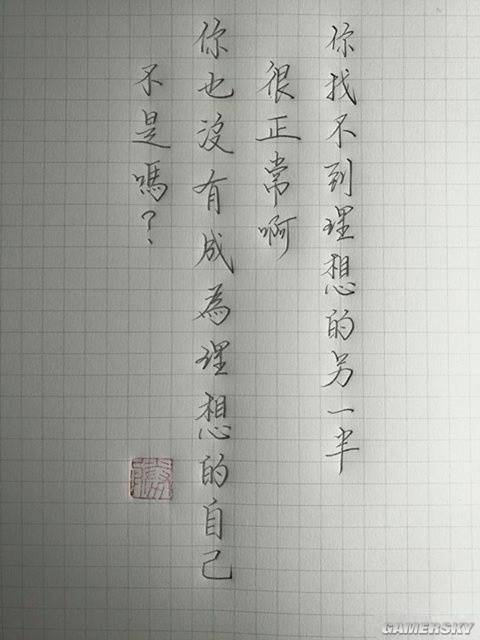 你找不到理想的另一半
很正常啊
你也沒有成為理想的自己
不是嗎？
GAMERSKY